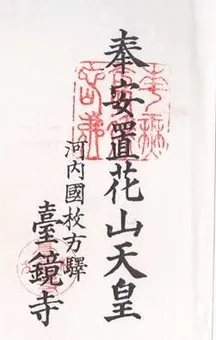 奉安置花山天皇
河內國枚方驛
臺鏡寺